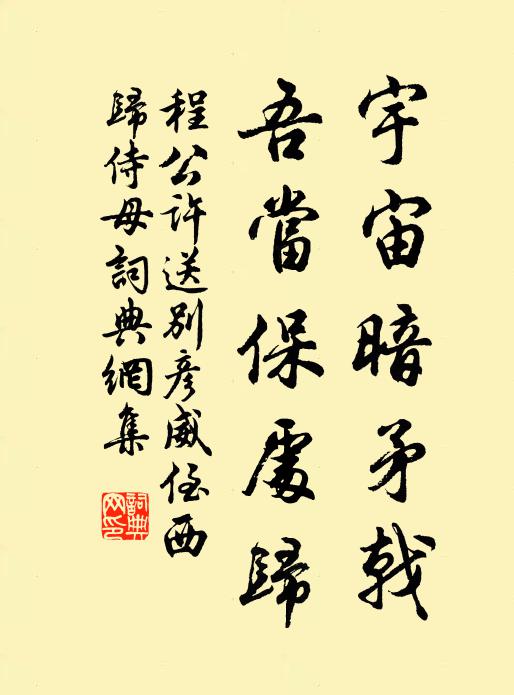 宇宙暗矛戟
吾當保處歸
程公許送別彥威侄西
歸侍母詞典網集
詞典網印